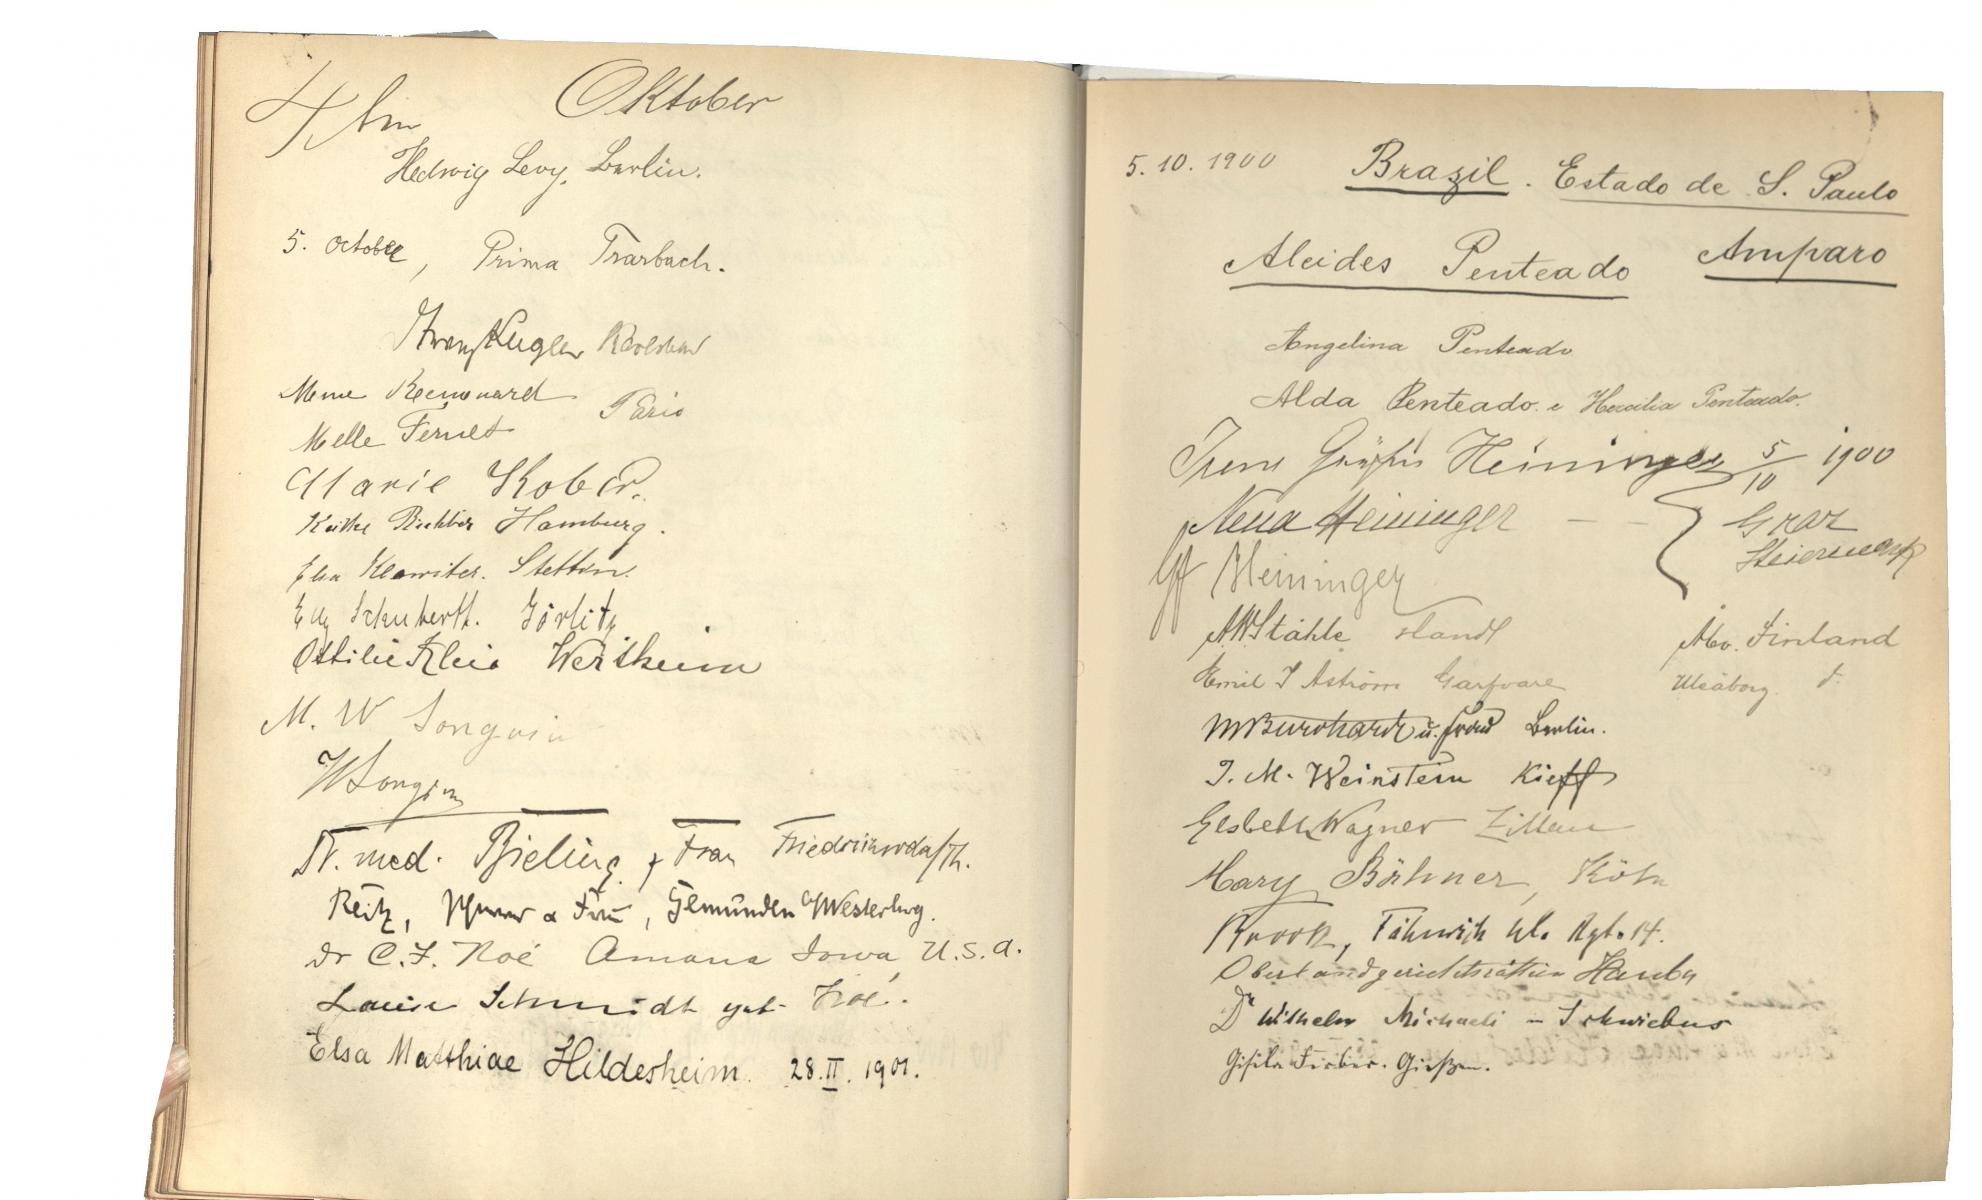 4 Am Oktober
Hedwig Levy, Berlin.
5. October, Prima Trarbach.
Kugler
Mme
Melle Fernet Paris
Marie Kober.
Käthe Richter Hamburg.
Elsa Klawiter. Stettin.
Elly Schubert. Görlitz
Ottilie Klein Wertheim
M. W Songvin
W Songvin
Dr. med. Bieling, & Frau Friedrichroda/Th.
Reitz, Pfarrer & Frau, Gemünden a/Westerbg.
dr C. F. Noé Amana Iowa, U.S.A.
Louise Schmidt geb. Noé.
Elsa Matthiae Hildesheim. 28.II.1901.
5.10.1900 Brazil. Estado de S. Paulo
Alcides Penteado Amparo
Angelina Penteado
Alda Penteado. e Hercilia Penteado.
Irene Gräfin Meininger 5/10 1900
Meininger — — Graz
Meininger Steiermark
A W Ståhle Åbo. Finland
Emil J Aström Garfvare Uleåborg. d:
M Burchardt u. Frau Berlin.
J. M. Weinstein Kieff
Elsbeth Wagner Zittau
Mary Böhner, Köln
Fähnrich Rgt. 14.
Oberlandgerichtsräthin
Dr Wilhelm Michaeli – Schwiebus
Gisela Gießen.